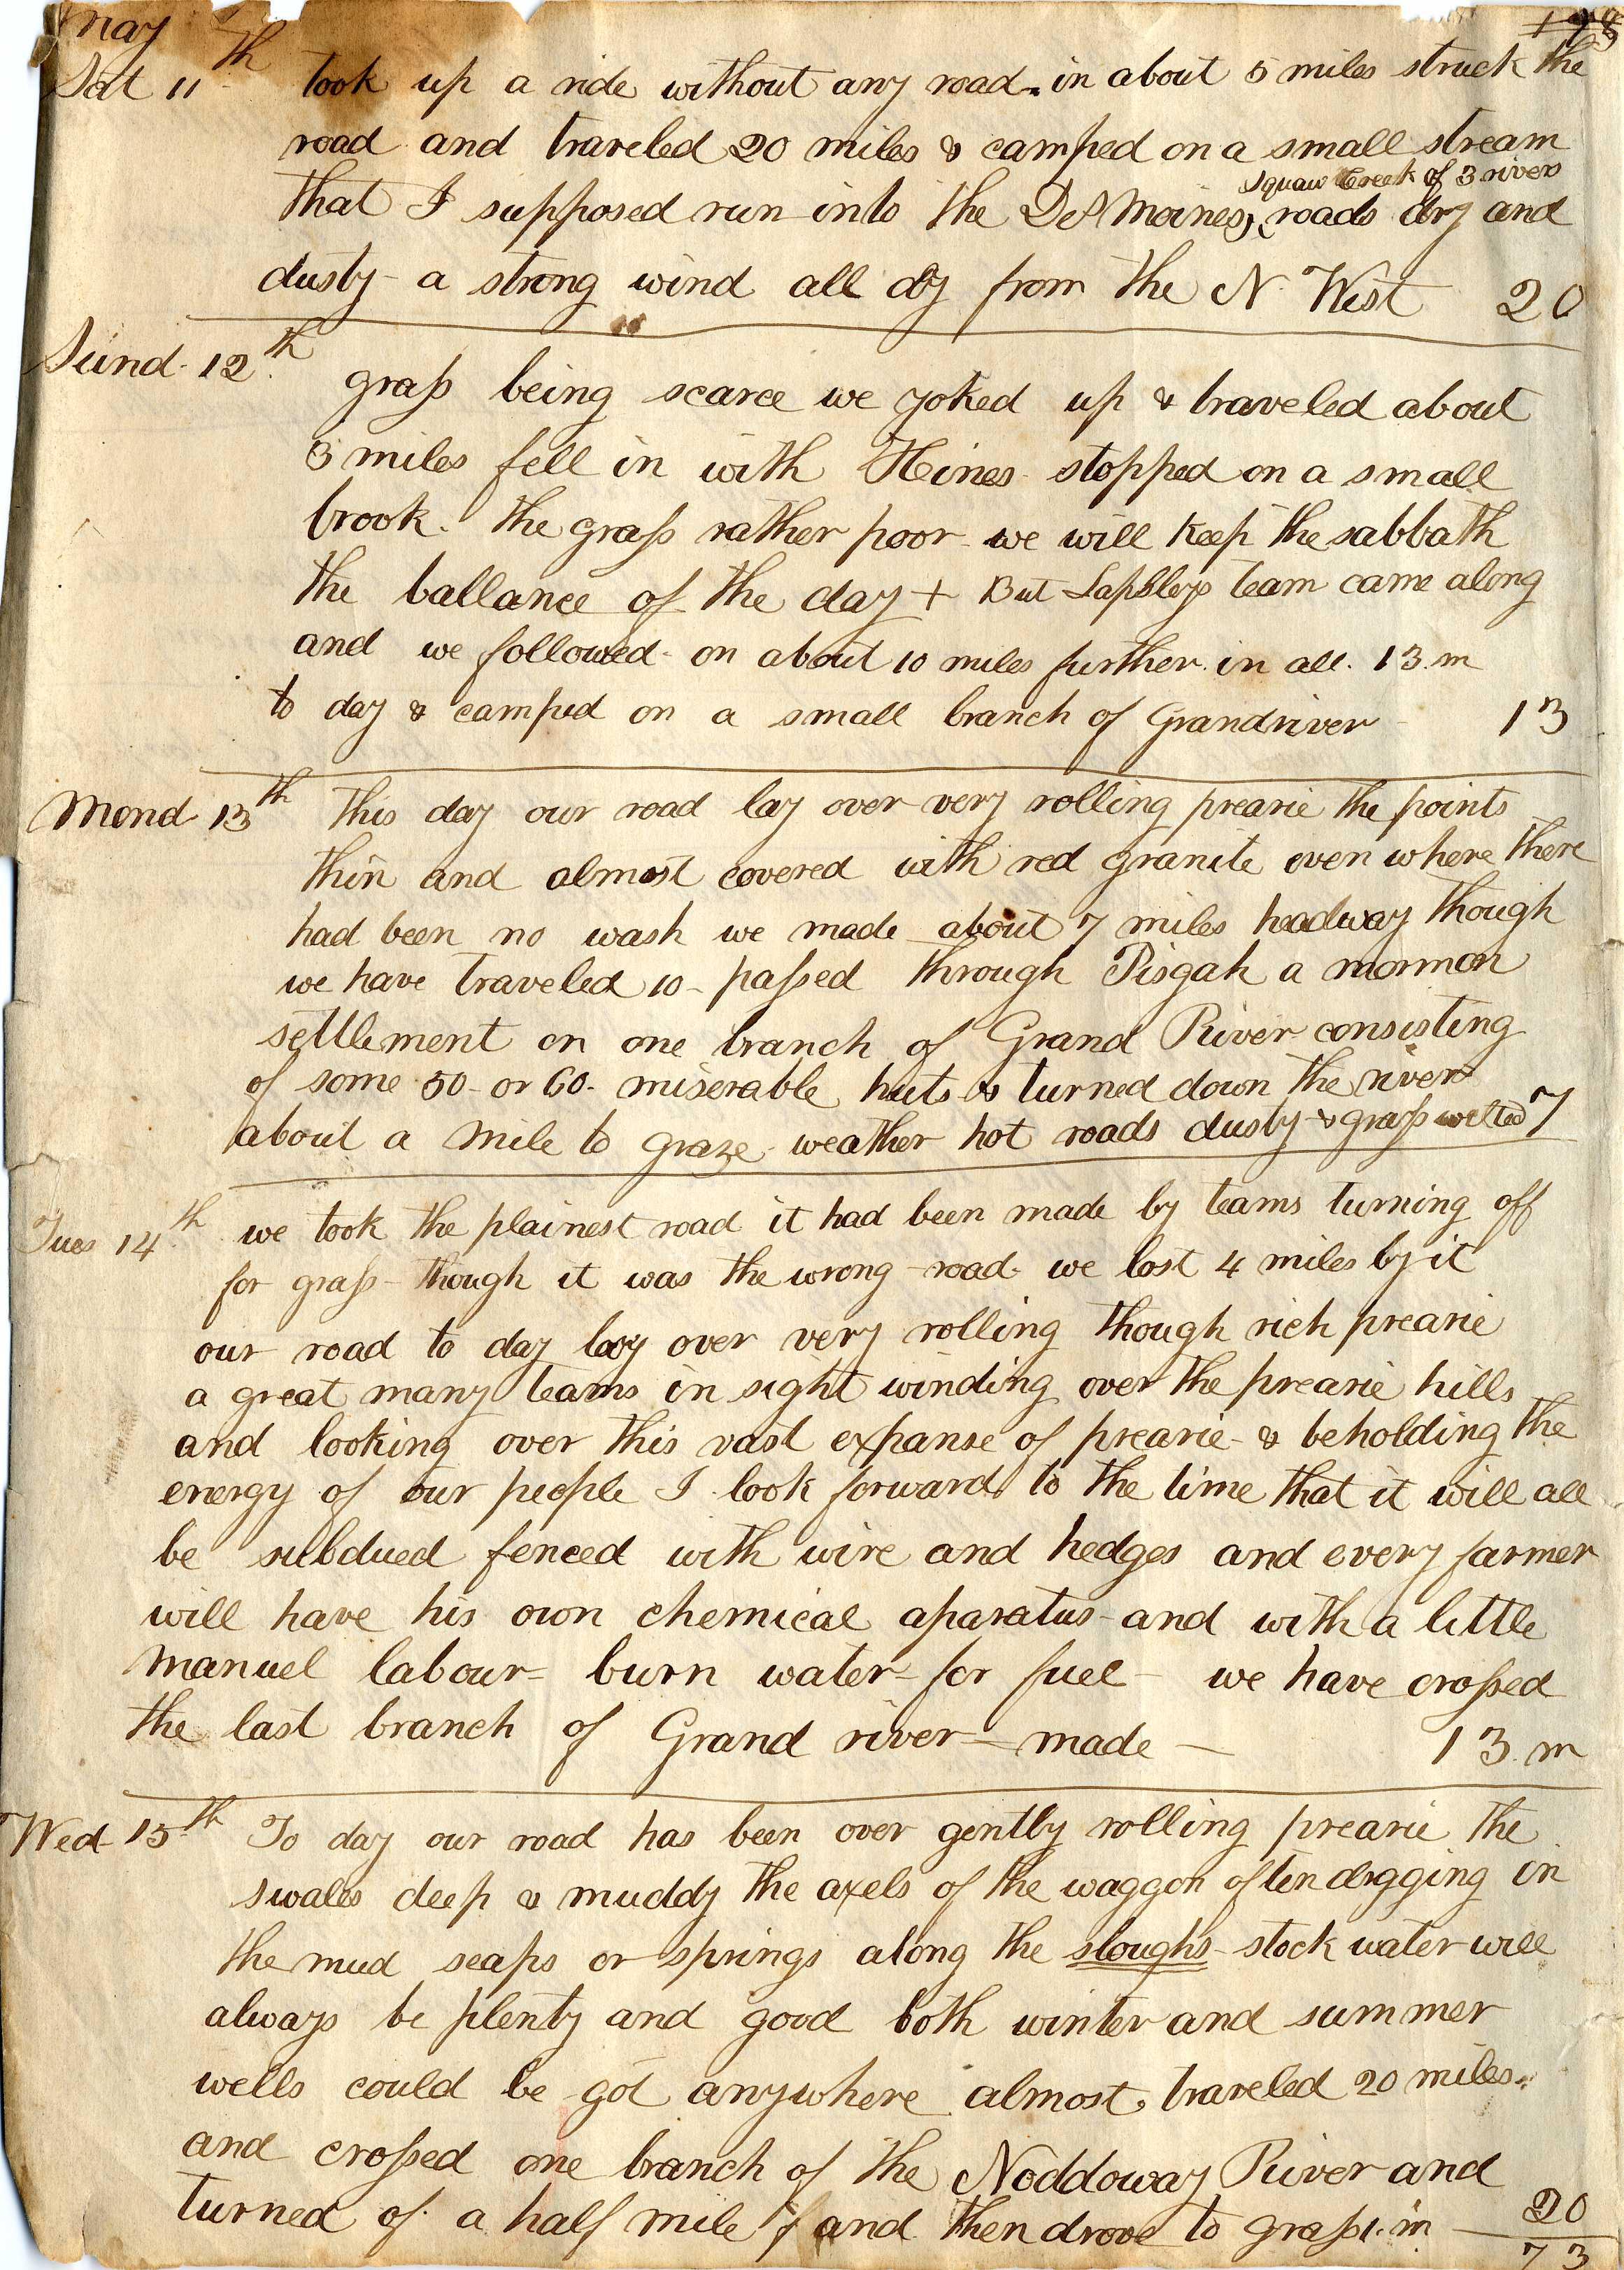 May
Sat 11th took up a ride without any road. in about 5 miles struck the
road and traveled 20 miles & camped on a small stream
Squaw Creek of 3 rivers
that I supposed run into the Des Moines, roads dry and
dusty - a strong wind all dy from the N. West 20
Sund. 12th grass being scarce we yoked up & traveled about
3 miles fell in with Hines - stopped on a small
brook. the grass rather poor - we will keep the sabbath
the ballance of the day + But Lapsleys team came along
and we followed - on about 10 miles further. in all. 13. m
to day & camped on a small branch of Grandriver - 13
Mond 13th This day our road lay over very rolling prearie the points
thin and almost covered with red granite even where there
had been no wash we made about 7 miles headway though
we have traveled 10 - passed through Pisgah a mormon
settlement on one branch of Grand River consisting
of some 50 - or 60 - miserable huts & turned down the river
about a mile to graze - weather hot roads dusty & grass wilted 7
Tues 14th we took the plainest road it had been made by teams turning off
for grass - though it was the wrong - road - we lost 4 miles by it
our road to day lay over very rolling though rich prearie
a great many teams in sight winding over the prearie hills
and looking over this vast expanse of prearie - & beholding the
energy of our people I look forward to the time that it will all
be subdued fenced with wire and hedges and every farmer
will have his own chemical aparatus - and with a little
manuel labour = burn water = for fuel - we have crossed
the last branch of Grand river = made — 13. m
Wed 15th To day our road has been over gently rolling prearie the
swales deep & muddy the axels of the waggon often digging in
the mud seaps or springs along the sloughs - stock water will
always be plenty and good both winter and summer
wells could be got anywhere almost. traveled 20 miles.
and crossed one branch of the Noddoway River and
turned of. a half mile and then drove to grass 1. m — 20
73